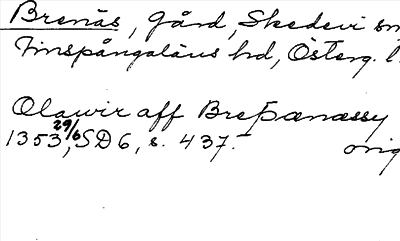 Brenäs, gård, Skedevi sn
Finspångaläns hd, Österg. l.
Olawir aff Breþænæssy
1353 29/6, SD 6, s. 437. orig